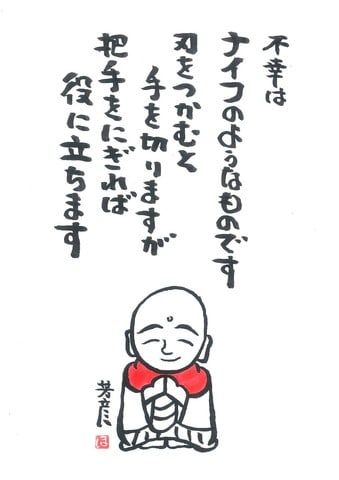 不幸は
ナイフのようなものです
刃をつかむと
手を切りますが
把手をにぎれば
役に立ちます
芳彦